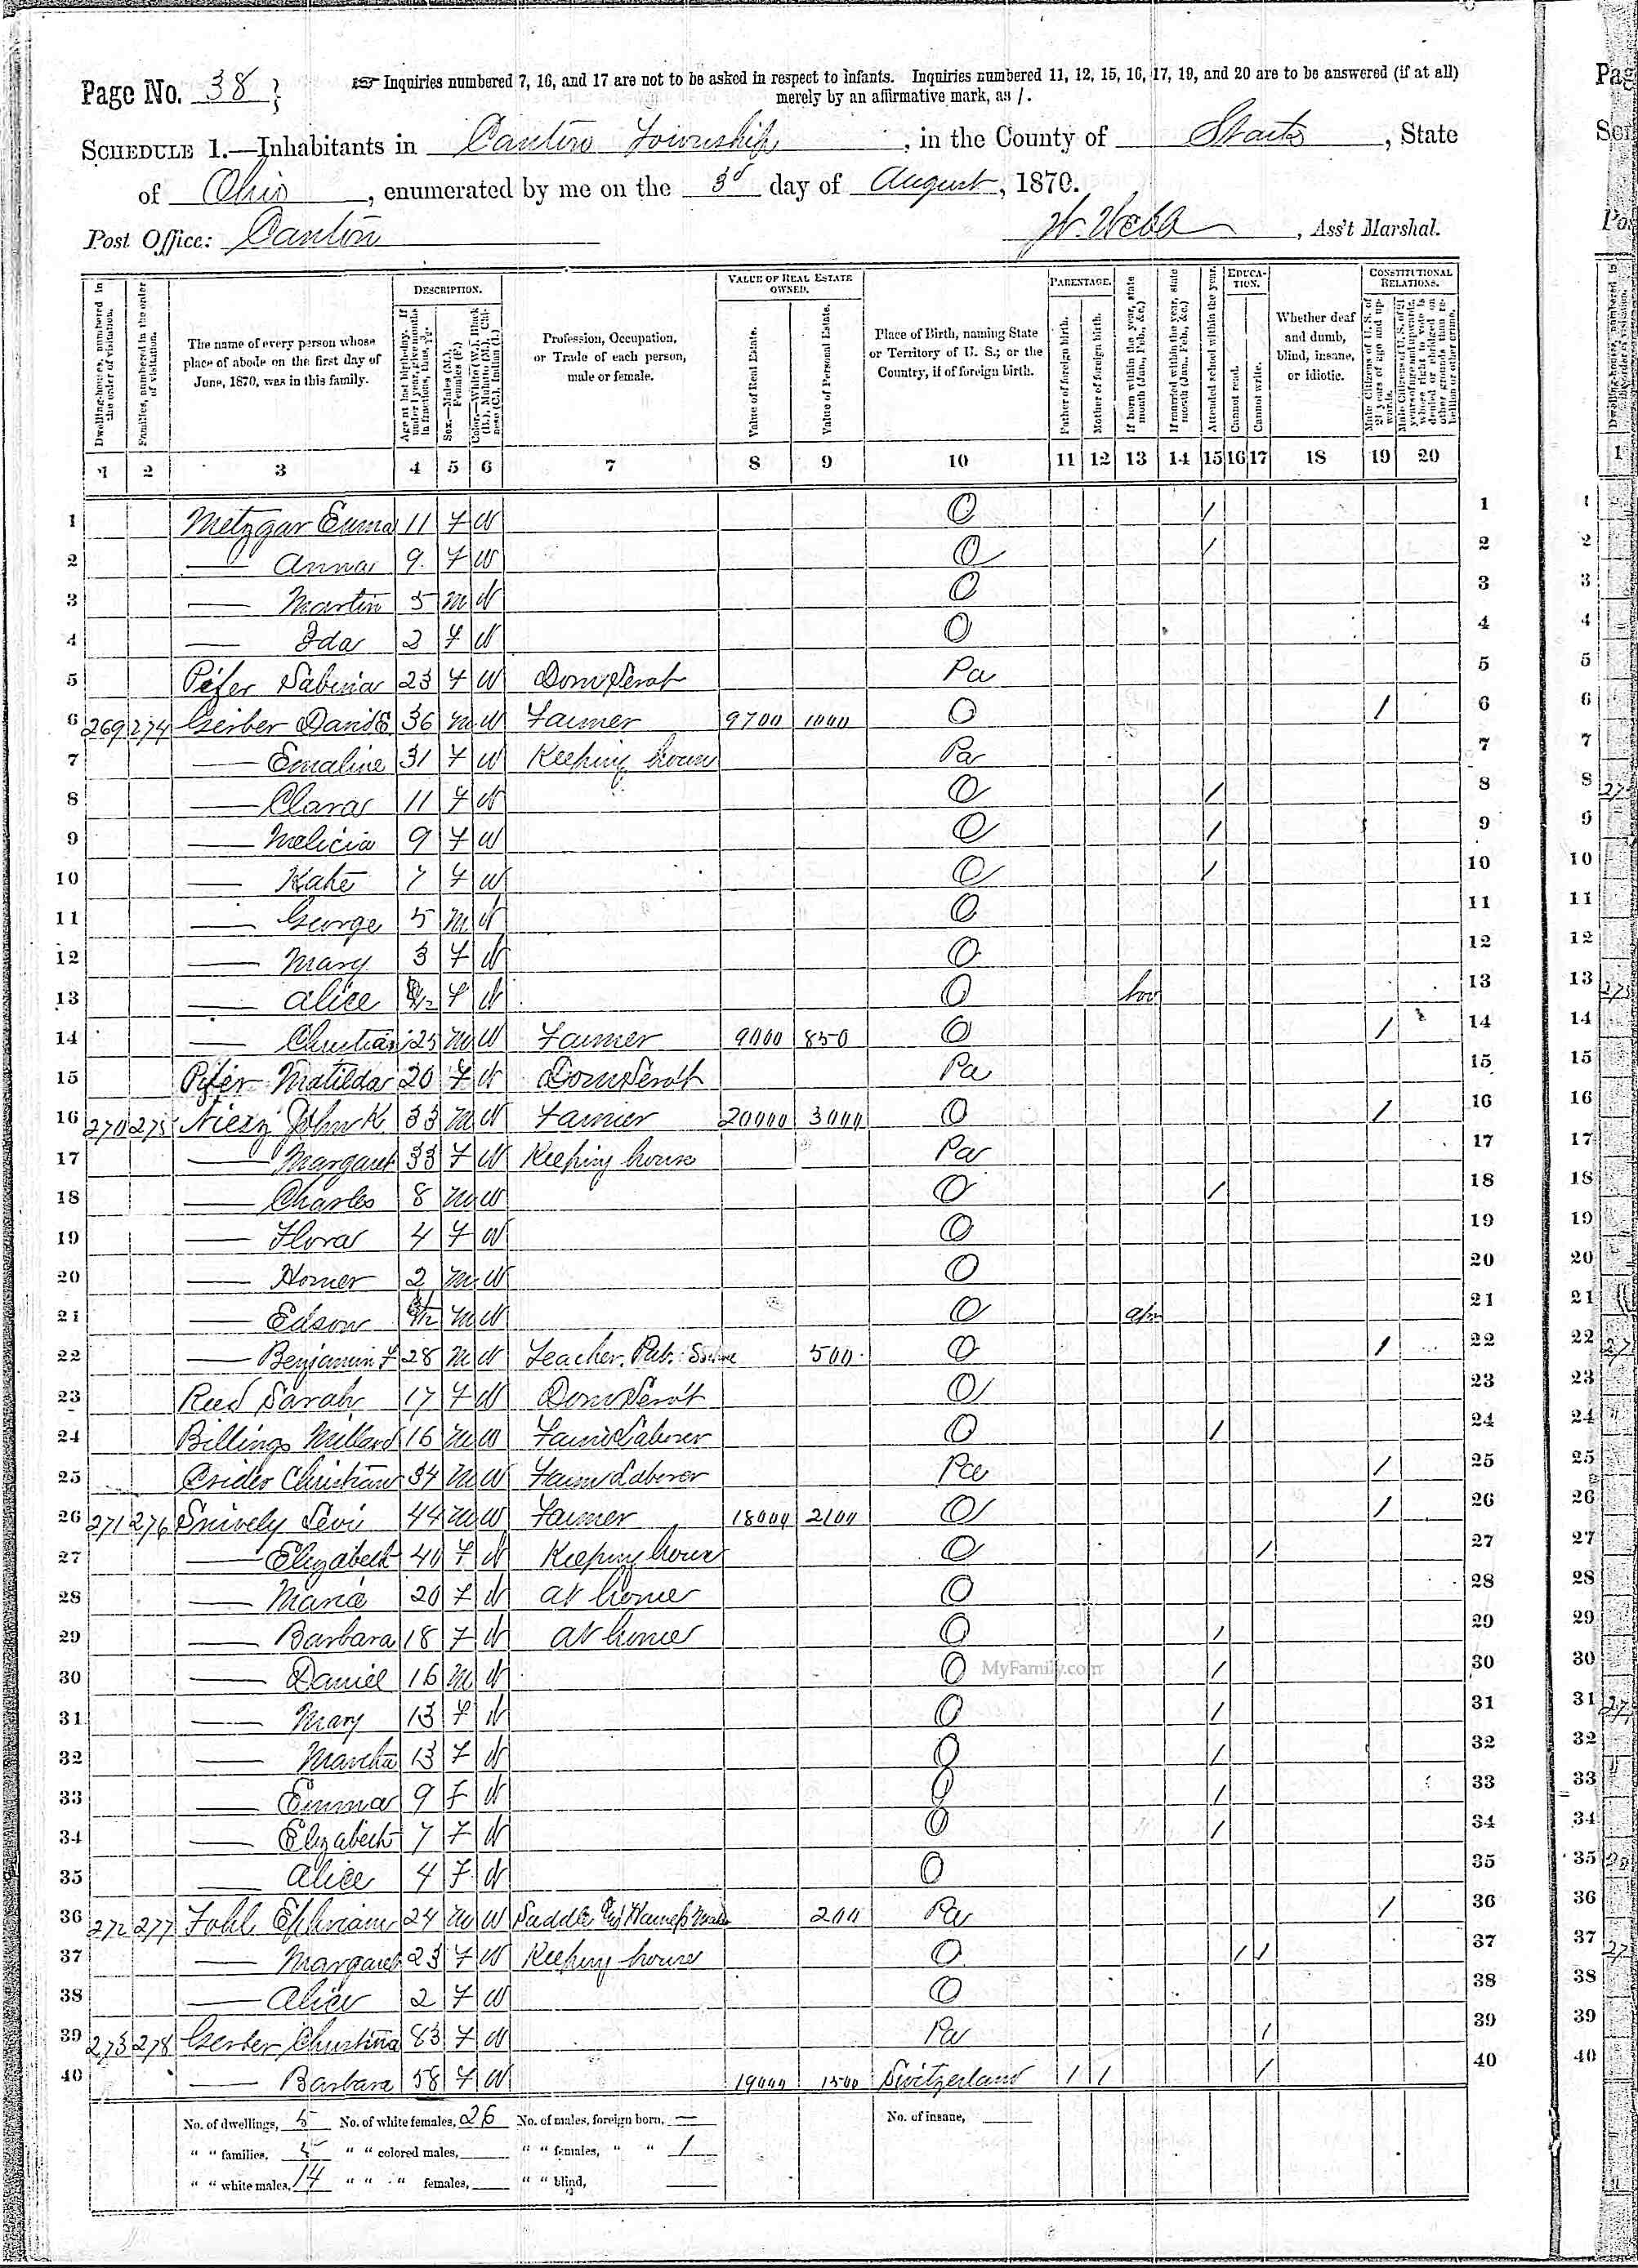 Page No. 38
Inquiries numbered 7, 16, and 17 are not to be asked in respect to infants. Inquiries numbered 11, 12, 15, 16, 17, 19, and 20 are to be answered (if at all)
merely by an affirmative mark, as /.
SCHEDULE 1.—Inhabitants in Canton Township, in the County of Stark, State
of Ohio, enumerated by me on the 3d day of August, 1870.
Post Office: Canton W. Webb, Ass't Marshal.
Dwelling-houses, numbered in the order of visitation.
Families, numbered in the order of visitation.
The name of every person whose place of abode on the first day of June, 1870, was in this family.
DESCRIPTION.
Age at last birthday. If under 1 year, give months in fractions, thus, 3/12.
Sex.—Males (M.), Females (F.)
Color.—White (W.), Black (B.), Mulatto (M.), Chinese (C.), Indian (I.)
Profession, Occupation, or Trade of each person, male or female.
VALUE OF REAL ESTATE OWNED.
Value of Real Estate.
Value of Personal Estate.
Place of Birth, naming State or Territory of U. S.; or the Country, if of foreign birth.
PARENTAGE.
Father of foreign birth.
Mother of foreign birth.
If born within the year, state month (Jan., Feb., &c.)
If married within the year, state month (Jan., Feb., &c.)
Attended school within the year.
EDUCATION.
Cannot read.
Cannot write.
Whether deaf and dumb, blind, insane, or idiotic.
CONSTITUTIONAL RELATIONS.
Male Citizens of U. S. of 21 years of age and upwards.
Male Citizens of U. S. of 21 years of age and upwards, whose right to vote is denied or abridged on other grounds than rebellion or other crime.
1 2 3 4 5 6 7 8 9 10 11 12 13 14 15 16 17 18 19 20
1 Metzgar Emma 11 F W O / 1
2 — Anna 9 F W O / 2
3 — Martin 5 M W O 3
4 — Ida 2 F W O 4
5 Pifer Sabina 23 F W Dom Servt Pa 5
6 269 274 Gerber David 36 M W Farmer 9700 1000 O / 6
7 — Emaline 31 F W Keeping house Pa 7
8 — Clara 11 F W O / 8
9 — Melicia 9 F W O / 9
10 — Kate 7 F W O / 10
11 — George 5 M W O 11
12 — Mary 3 F W O 12
13 — Alice F W O Nov 13
14 — Christian 25 M W Farmer 9000 850 O / 14
15 Pifer Matilda 20 F W Dom Servt Pa 15
16 270 275 John K 33 M W Farmer 20000 3000 O / 16
17 — Margaret 33 F W Keeping house Pa 17
18 — Charles 8 M W O / 18
19 — Flora 4 F W O 19
20 — Homer 2 M W O 20
21 — Edson M W O Apr 21
22 — Benjamin F 28 M W Teacher Pub. 500 O / 22
23 Reed Sarah 17 F W Dom Servt O 23
24 Billings Millard 16 M W Farm Laborer O / 24
25 Christian 34 M W Farm Laborer Pa / 25
26 271 276 Snively Levi 44 M W Farmer 18000 2100 O / 26
27 — Elizabeth 40 F W Keeping house O / 27
28 — Maria 20 F W at home O 28
29 — Barbara 18 F W at home O / 29
30 — Daniel 16 M W O / 30
31 — Mary 13 F W O / 31
32 — Martha 13 F W O / 32
33 — Emma 9 F W O / 33
34 — Elizabeth 7 F W O / 34
35 — Alice 4 F W O 35
36 272 277 Fohl Ephriam 24 M W Saddle & Harness Maker 200 Pa / 36
37 — Margaret 23 F W Keeping house O / / 37
38 — Alice 2 F W O 38
39 273 278 Gerber Christina 83 F W Pa / 39
40 — Barbara 58 F W 19000 1500 Switzerland / / / 40
No. of dwellings, 5 No. of white females, 26 No. of males, foreign born, — No. of insane,
" " families, 5 " " colored males, " " females, " " 1
" " white males, 14 " " " females, " " blind,
MyFamily.com